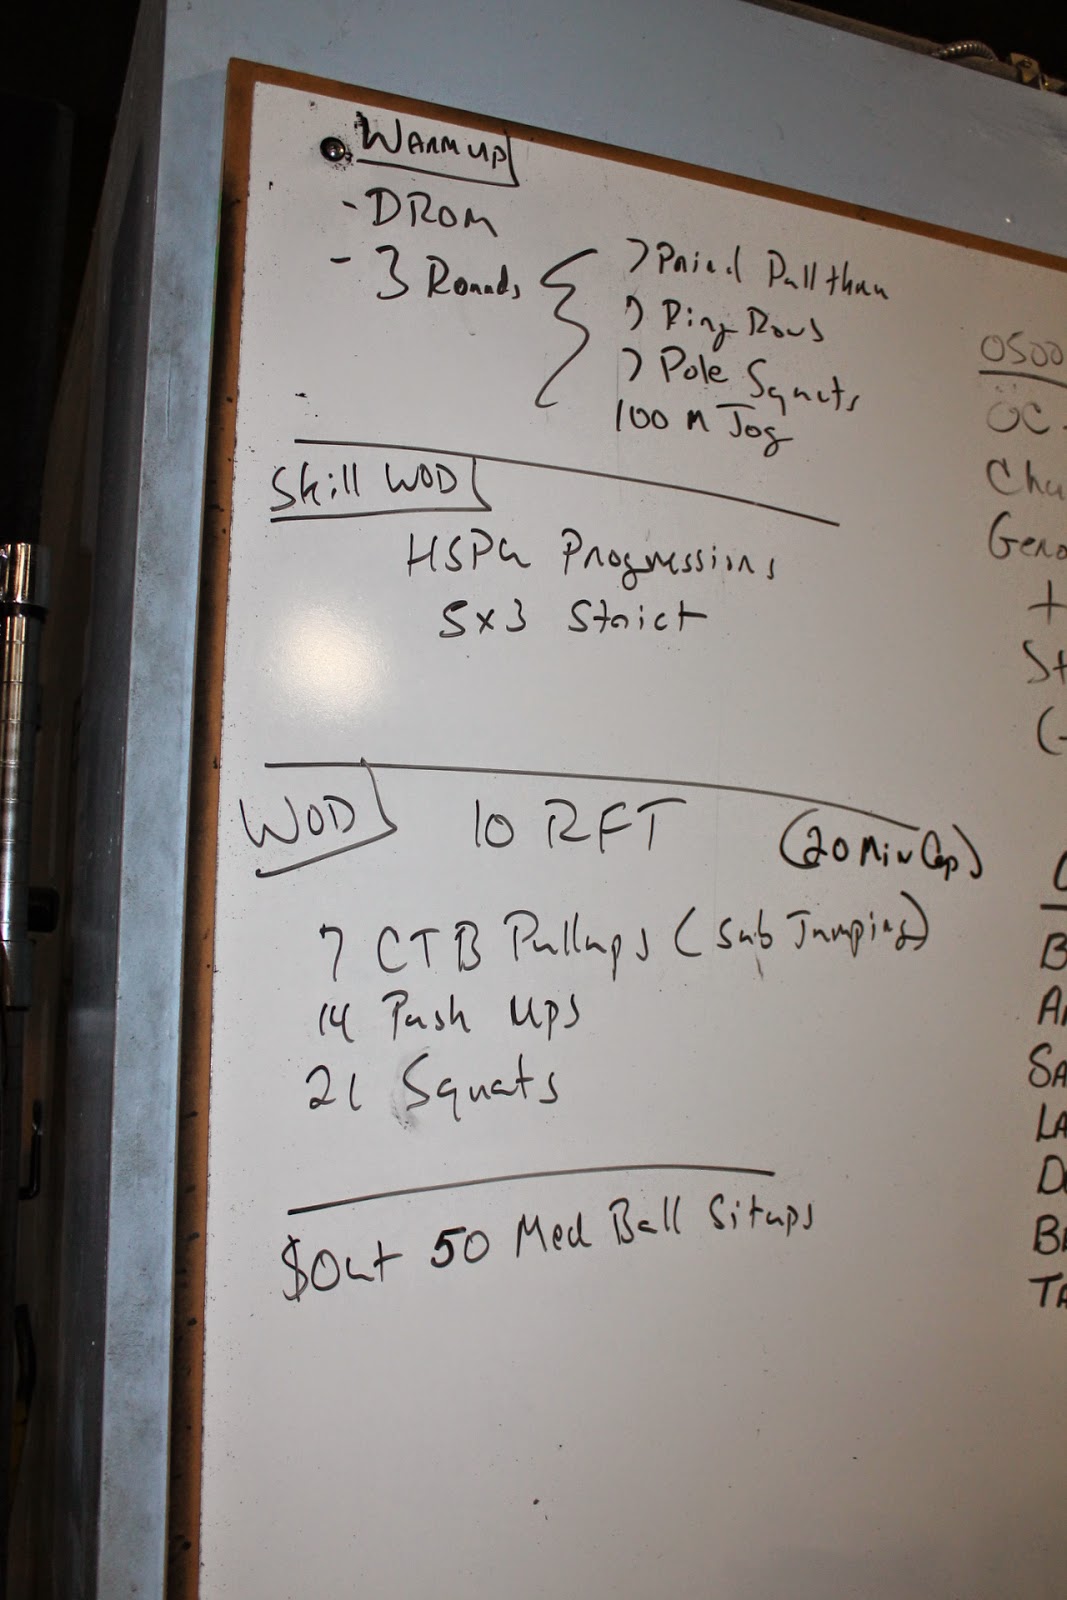 WARMUP
- DROM
- 3 Rounds
7 Paired Pull thru
7 Ring Rows
7 Pole Squats
100 M Jog
Skill WOD
HSPU Progressions
5x3 Strict
WOD 10 RFT (20 Min Cap)
7 CTB Pullups (sub Jumping)
14 Push Ups
21 Squats
$Out 50 Med Ball Situps
0500
OC
Cha
Gen
+
St
(
B
A
SA
LA
D
B
TA